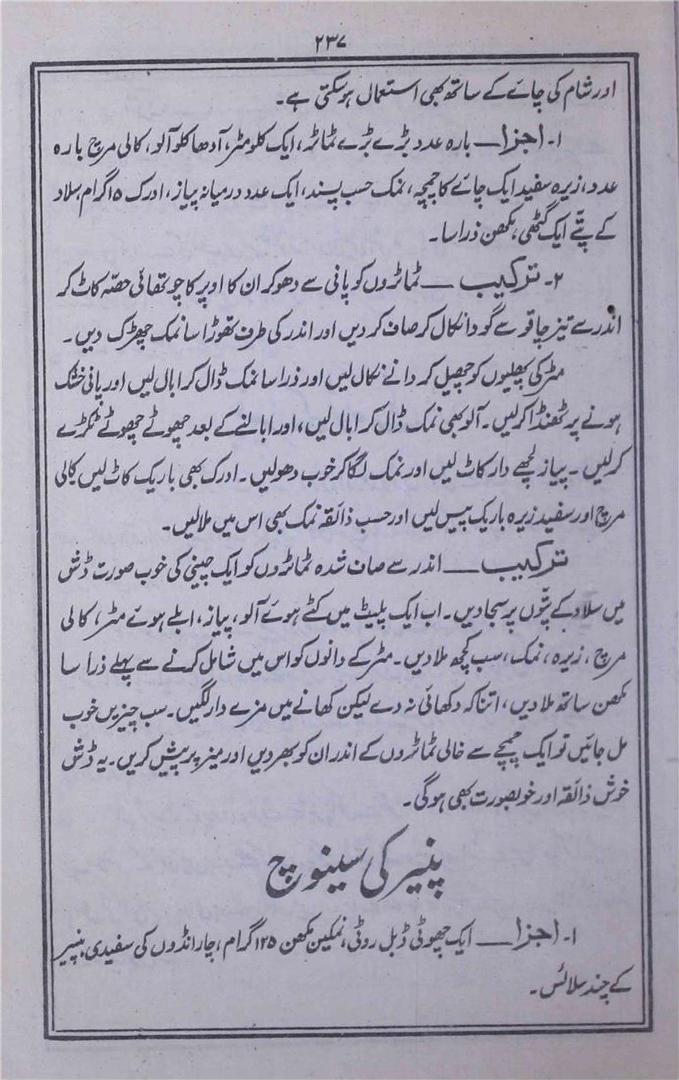 ۲۳۷
اور شام کی چائے کے ساتھ بھی استعمال ہو سکتی ہے۔
۱۔ اجزا — بارہ عدد بڑے بڑے ٹماٹر، ایک کلو مٹر، آدھا کلو آلو، کالی مرچ بارہ
عدد، زیرہ سفید ایک چائے کا چمچہ، نمک حسب پسند، ایک عدد درمیانہ پیاز، ادرک ۱۵ گرام، سلاد
کے پتّے ایک گٹھی، مکھن ذرا سا۔
۲۔ ترکیب — ٹماٹروں کو پانی سے دھو کر ان کا اوپر کا چوتھائی حصّہ کاٹ کر
اندر سے تیز چاقو سے گودا نکال کر صاف کر دیں اور اندر کی طرف تھوڑا سا نمک چھڑک دیں۔
مٹر کی پھلیوں کو چھیل کر دانے نکال لیں اور ذرا سا نمک ڈال کر ابال لیں اور پانی خشک
ہونے پر ٹھنڈا کر لیں۔ آلو بھی نمک ڈال کر ابال لیں، اور ابالنے کے بعد چھوٹے چھوٹے ٹکڑے
کر لیں۔ پیاز لچھے دار کاٹ لیں اور نمک لگا کر خوب دھو لیں۔ ادرک بھی باریک کاٹ لیں کالی
مرچ اور سفید زیرہ باریک پیس لیں اور حسب ذائقہ نمک بھی اس میں ملا لیں۔
ترکیب — اندر سے صاف شدہ ٹماٹروں کو ایک چینی کی خوب صورت ڈش
میں سلاد کے پتّوں پر سجا دیں۔ اب ایک پلیٹ میں کٹے ہوئے آلو، پیاز، ابلے ہوئے مٹر، کالی
مرچ، زیرہ، نمک، سب کچھ ملا دیں۔ مٹر کے دانوں کو اس میں شامل کرنے سے پہلے ذرا سا
مکھن ساتھ ملا دیں، اتنا کہ دکھائی نہ دے لیکن کھانے میں مزے دار لگیں۔ سب چیزیں خوب
مل جائیں تو ایک چمچے سے خالی ٹماٹروں کے اندر ان کو بھر دیں اور میز پر پیش کریں۔ یہ ڈش
خوش ذائقہ اور خوبصورت بھی ہوگی۔
پنیر کی سینوچ
۱۔ اجزا — ایک چھوٹی ڈبل روٹی، نمکین مکھن ۱۲۵ گرام، چار انڈوں کی سفیدی، پنیر
کے چند سلائس۔